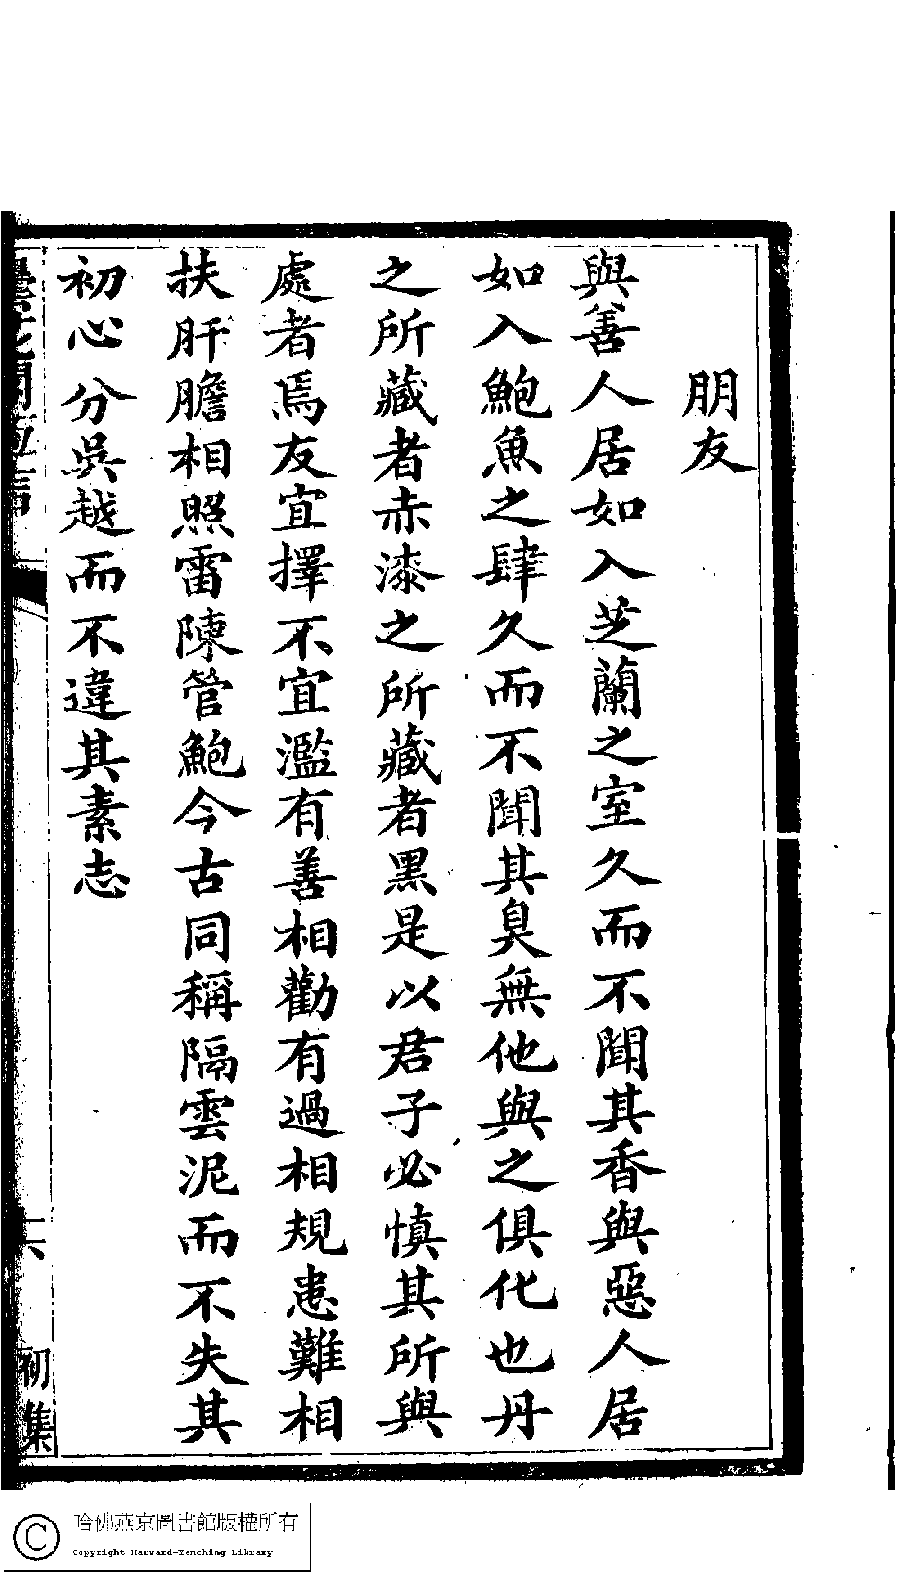 朋友
與善人居如入芝蘭之室久而不聞其香與惡人居
如入鮑魚之肆久而不聞其臭無他與之俱化也丹
之所藏者赤漆之所藏者黑是以君子必慎其所與
處者焉友宜擇不宜濫有善相勸有過相規患難相
扶肝膽相照雷陳管鮑今古同稱隔雲泥而不失其
初心分吳越而不違其素志
初集
哈佛燕京圖書館版權所有
Copyright Harvard-Yenching Library